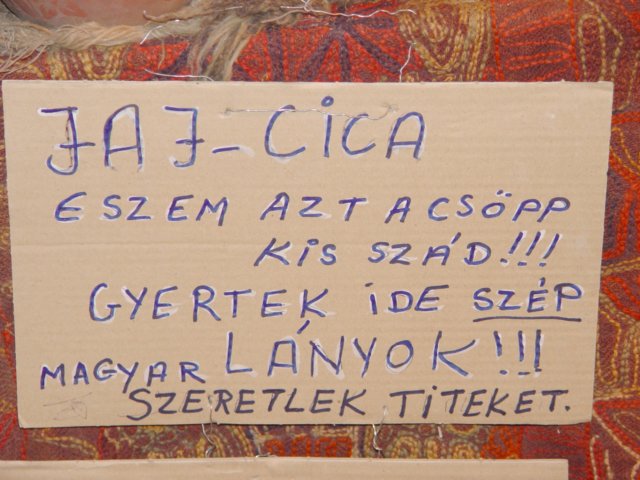 JAJ-CiCA
ESZEM AZT A CSÖPP
KiS SZÁD!!!
GYERTEK iDE SZÉP
MAGYAR LÁNYOK!!!
SZERETLEK TiTEKET.